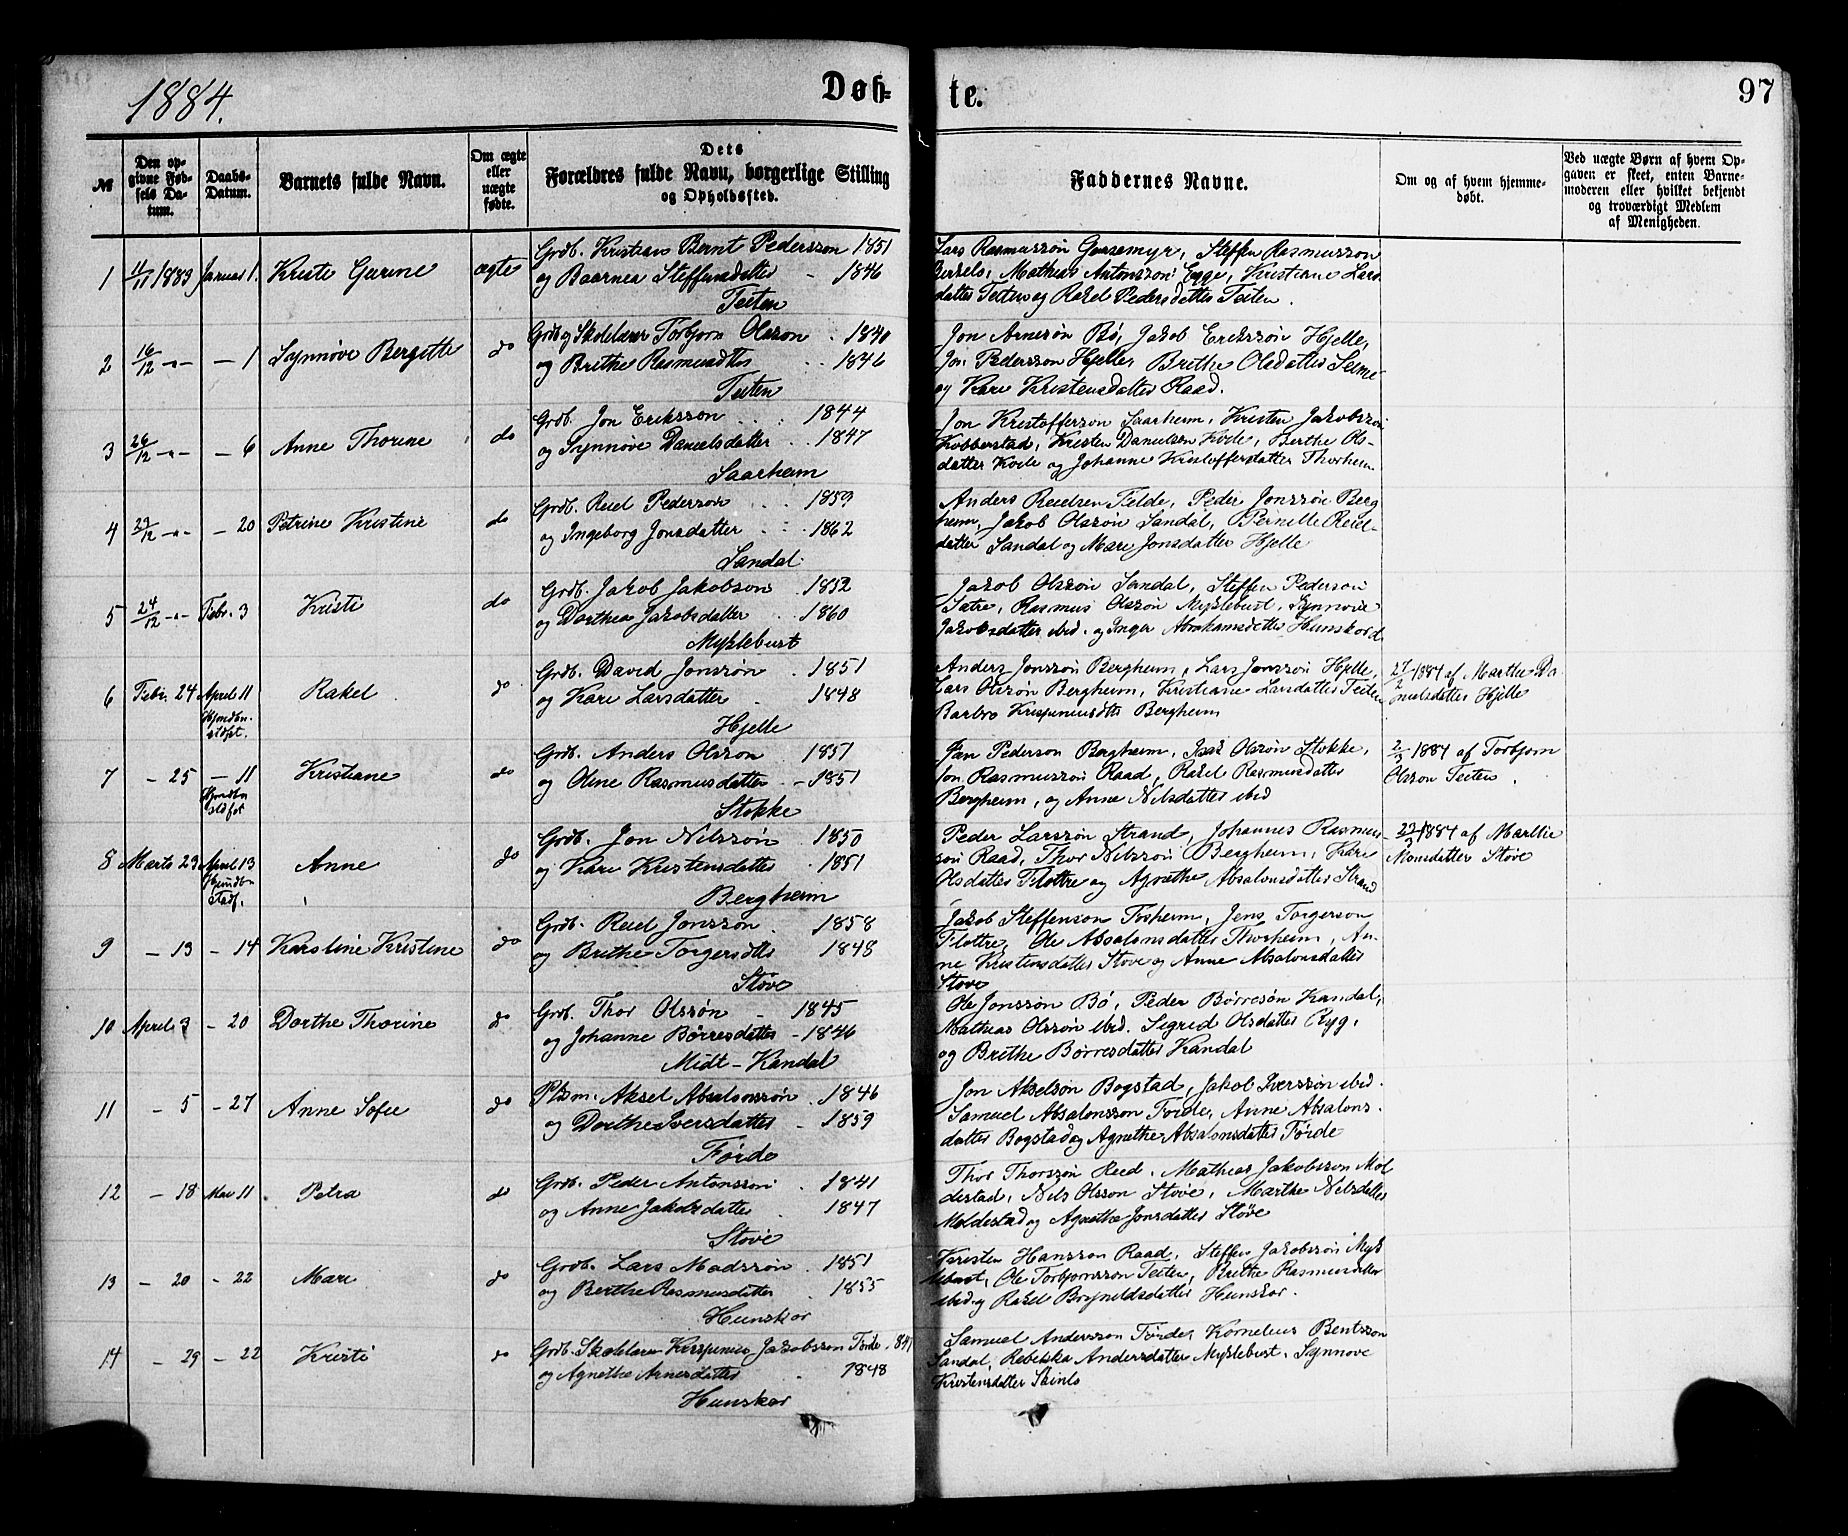 1884.
Døb-
te.
97
№
Den op-
givne Fød-
sels Da-
tum.
Daabs-
Datum.
Barnets fulde Navn.
Om ægte
eller
uægte
fødte.
Dets
Forældres fulde Navn, borgerlige Stilling
og Opholdssted.
Faddernes Navne.
Om og af hvem hjemme-
døbt.
Ved uægte Børn af hvem Op-
gaven er skeet, enten Barne-
moderen eller hvilket bekjendt
og troværdigt Medlem
af Menigheden.
1 11/11 1883 Januar 1. Kristi Gurine ægte
Grdb. Kristians Bernt Pederssøn 1851
og Baarnea Steffensdatter - 1846
Teiten
Lars Rasmussøn Gaasemyr, Steffen Rasmussøn
Mathias Antonssøn Egge, Kristiane Lars
datter Teiten og Rakel Pedersdatter Teiten.
2 16/12 -"- - 1 Synnøve Bergitte do
Grdb og Skolelærer Torbjørn Olsson . 1840
og Brithe Rasmusdtr . . 1846
Teiten
Jon Arnesøn Bø, Jakob Erikssøn Hjelle,
Jon Pedersson Hjelle, Brithe Olsdatter Seime
og Kari Kristensdatter Raad.
3 26/12 -"- - 6 Anne Thorine do
Grdb. Jon Eriksson . . 1844
og Synnøve Danielsdatter . . 1847
Saarheim
Jon Kristofferson Saarheim, Kristen Jakobssøn
Kobberstad, Kristen Danielsen Kvile, Berthe Ols-
datter Kvile og Johanne Kristoffersdatter Thorheim
4 22/12 -"- - 20 Petrine Kristine do
Grdb. Reiel Pederson . . 1859
og Ingeborg Jonsdatter . . 1862
Sandal.
Anders Reielsen Felde, Peder Jonssøn Berg
heim, Jakob Olssøn Sandal, Pernille Reiel-
datter Sandal og Mari Jonsdatter Hjelle
5 24/12 -"- Febr. 3 Kristi do
Grdb. Jakob Jakobson . 1852
og Dorthea Jakobsdatter . . 1860
Myklebust
Jakob Olssøn Sandal, Steffen Pederson
Sætre, Rasmus Olssøn Myklebust, Synnøve
Jakobsdatter ibid. og Inger Abrahamsdatter Hunskord
6 Febr. 24 April 11 Rakel . do
Grdb. David Jonssøn . 1851
og Kari Larsdatter . 1848
Hjelle
Anders Jonssøn Bergheim, Lars Jonssøn Hjelle,
Lars Olssøn Bergheim, Kristiane Larsdatter Teiten
Barbro Krispiniusdtr Bergheim
27/2 1884 af Marthe Da
nielsdatter Hjelle
7 - 25 - 11 Kristiane do
Grdb. Anders Olsson 1851
og Oline Rasmusdatter - 1851
Stokke
Jan Pederson Bergheim, Isak Olssøn Stokke,
Jon Rasmussøn Raad, Rakel Rasmusdatter
Bergheim, og Anne Nilsdatter ibid
2/3 1884 af Torbjørn
Olsson Teiten .
8 Marts 23 April 13 Anne do
Grdb. Jon Nilssøn . 1850
og Kari Kristensdatter . 1851
Bergheim
Peder Larssøn Strand, Johannes Rasmus
søn Raad, Thor Nilssøn Bergheim, Kari
Olsdatter Flottre og Agnethe Absalonsdatter Strand
23/3 1884 af Marthe
Monsdatter Støve
9 - 13 - 14 Karstine Kristine do
Grdb. Reiel Jonssøn . 1858
og Brithe Torgersdtr 1848
Støve
Jakob Steffenson Tosheim, Jens Torgerson
Flottre, Ole Absalonsdatter Thorheim, An-
ne Kristensdatter Støve og Anne Absalonsdatter
Støve
10 April 3 - 20 Dorthe Thorine do
Grdb. Thor Olssøn - 1845
og Johanne Børresdatter - 1846
Midt-Kandal
Ole Jonssøn Bø, Peder Børresøn Kandal,
Mathias Olssøn ibid. Sigrid Olsdatter Ryg,
og Brithe Børresdatter Kandal
11 - 5 - 27 Anne Sofie do
Plsm. Aksel Absalonssøn . 1846
og Dorthe Iversdatter - 1859
Førde
Jon Akselson Bogstad, Jakob Iverssøn ibid.
Samuel Absalonsson Førde, Anne Absalons-
datter Bogstad og Agnethe Absalonsdatter Førde
12 - 18 Mai 11 . Petra do
Grdb. Peder Antonsson . 1841
og Anne Jakobsdatter . 1847
Støve
Thor Thorssøn Reed, Mathias Jakobsson Mol
destad, Nils Olsson Støve, Marthe Nilsdatter
Moldestad og Agnethe Jonsdatter Støve
13 - 20 - 22 Mari do
Grdb. Lars Madssøn . 1851
og Berthe Rasmusdatter . 1855
Hunskor
Kristen Hansson Raad, Steffen Jakobssøn Myk
lebust, Ole Torbjørnsson Teiten, Brithe Rasmusdatter
ibid og Rakel Brynildsdatter Hunskor.
14 - 29 - 22 Kristi do
Grdb. Skolelærer Krispinius Jakobsson Førde . 841
og Agnethe Arnesdatter . 1848
Hunskor
Samuel Andersson Førde, Kornelius Bentsson
Sandal, Rebekka Andersdatter Myklebust, Synnøve
Kristensdatter